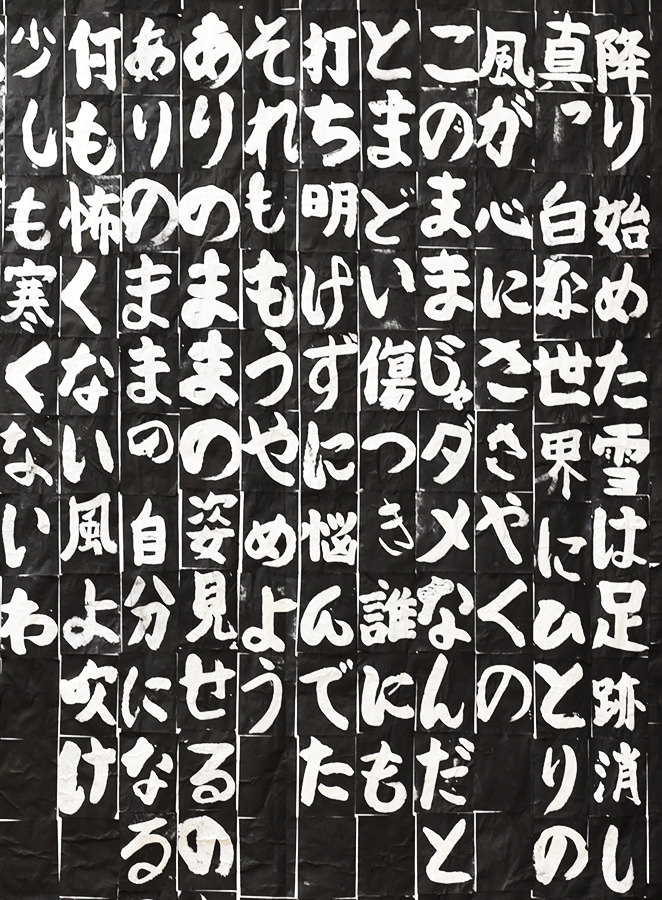 降り始めた雪は足跡消し
真っ白な世界にひとりの
風が心にささやくの
このままじゃダメなんだと
とまどい傷つき誰にも
打ち明けずに悩んでた
それももうやめよう
ありのままの姿見せるの
ありのままの自分になる
何も怖くない風よ吹け
少しも寒くないわ